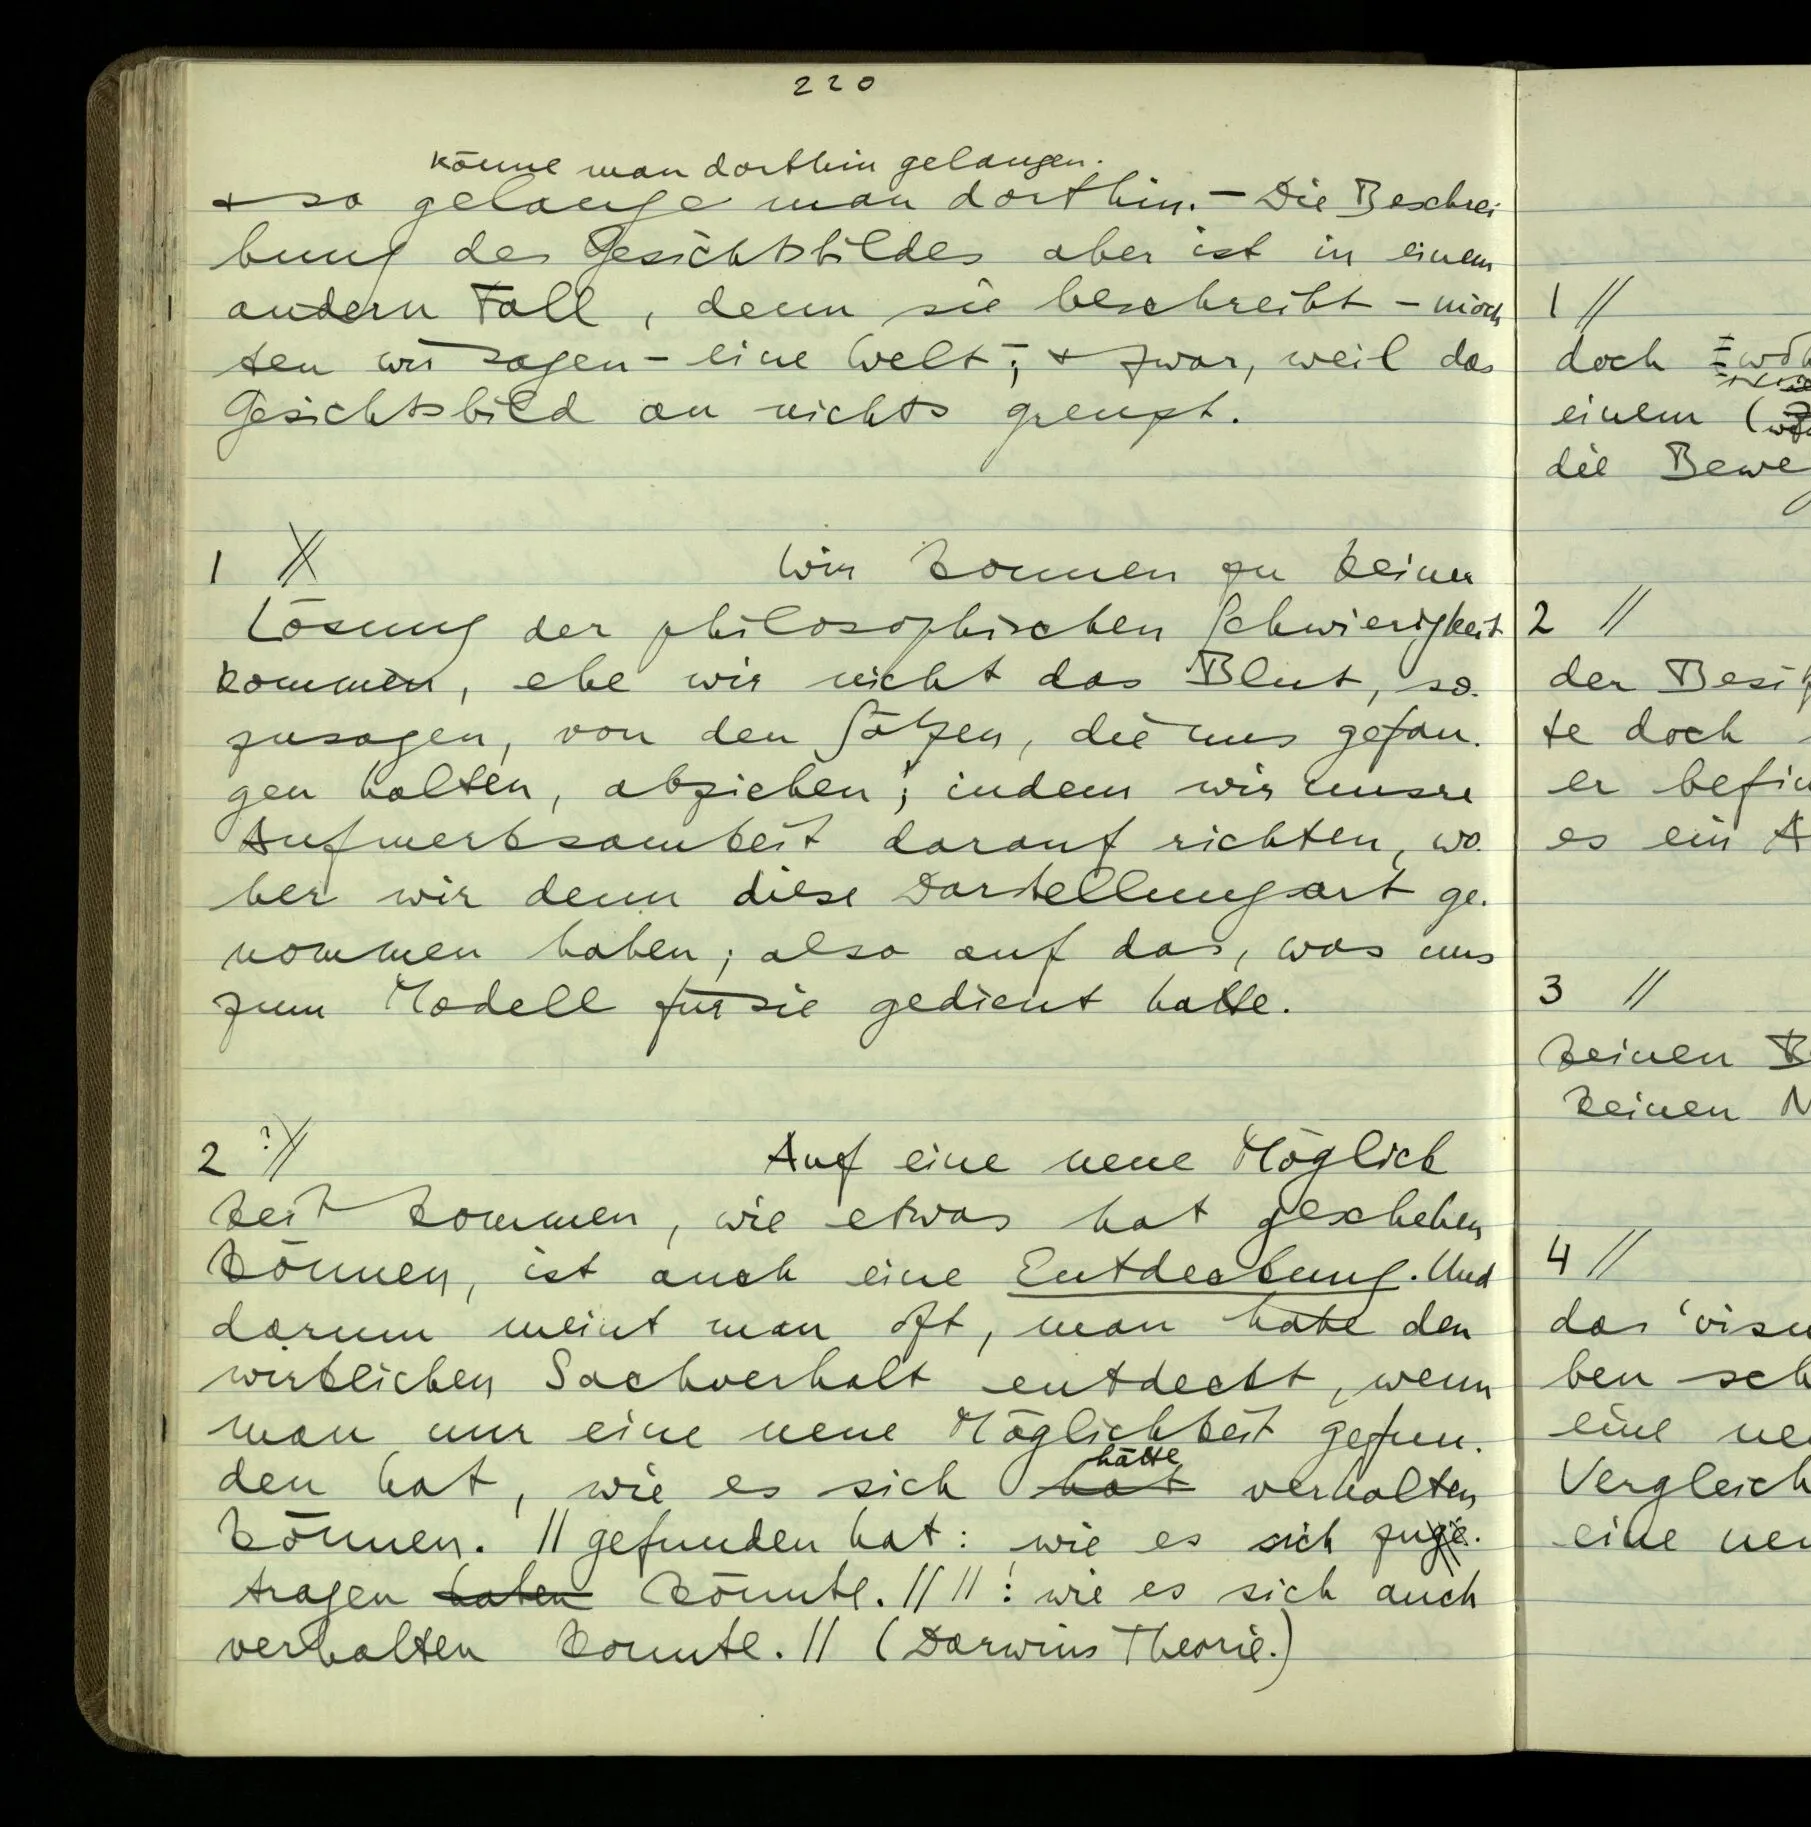 220
könne man dorthin gelangen.
+ so gelange man dorthin. – Die Beschrei
bung des Gesichtsbildes aber ist in einem
andern Fall, denn sie beschreibt – möch
ten wir sagen – eine Welt; + zwar, weil das
Gesichtsbild an nichts grenzt.
1 // Wir können zu keiner
Lösung der philosophischen Schwierigkeit
kommen, ehe wir nicht das Blut, so-
zusagen, von den Sätzen, die uns gefan-
gen halten, abziehen; indem wir unsre
Aufmerksamkeit darauf richten, wo-
her wir denn diese Darstellungsart ge-
nommen haben; also auf das, was uns
zum Modell für sie gedient hatte.
2 ? // Auf eine neue Möglich
keit kommen, wie etwas hat geschehen
können, ist auch eine Entdeckung. Und
darum meint man oft, man habe den
wirklichen Sachverhalt entdeckt, wenn
man nur eine neue Möglichkeit gefun-
den hat, wie es sich hat hätte verhalten
können. // gefunden hat: wie es sich zuge-
tragen haben könnte. // // : wie es sich auch
verhalten konnte. // (Darwins Theorie.)
1 //
doch
einem (
die Bewe
2 //
der Besitz
te doch
er befin
es ein A
3 //
keinen B
keinen N
4 //
das 'visu
ben sch
eine neu
Vergleich
eine neu